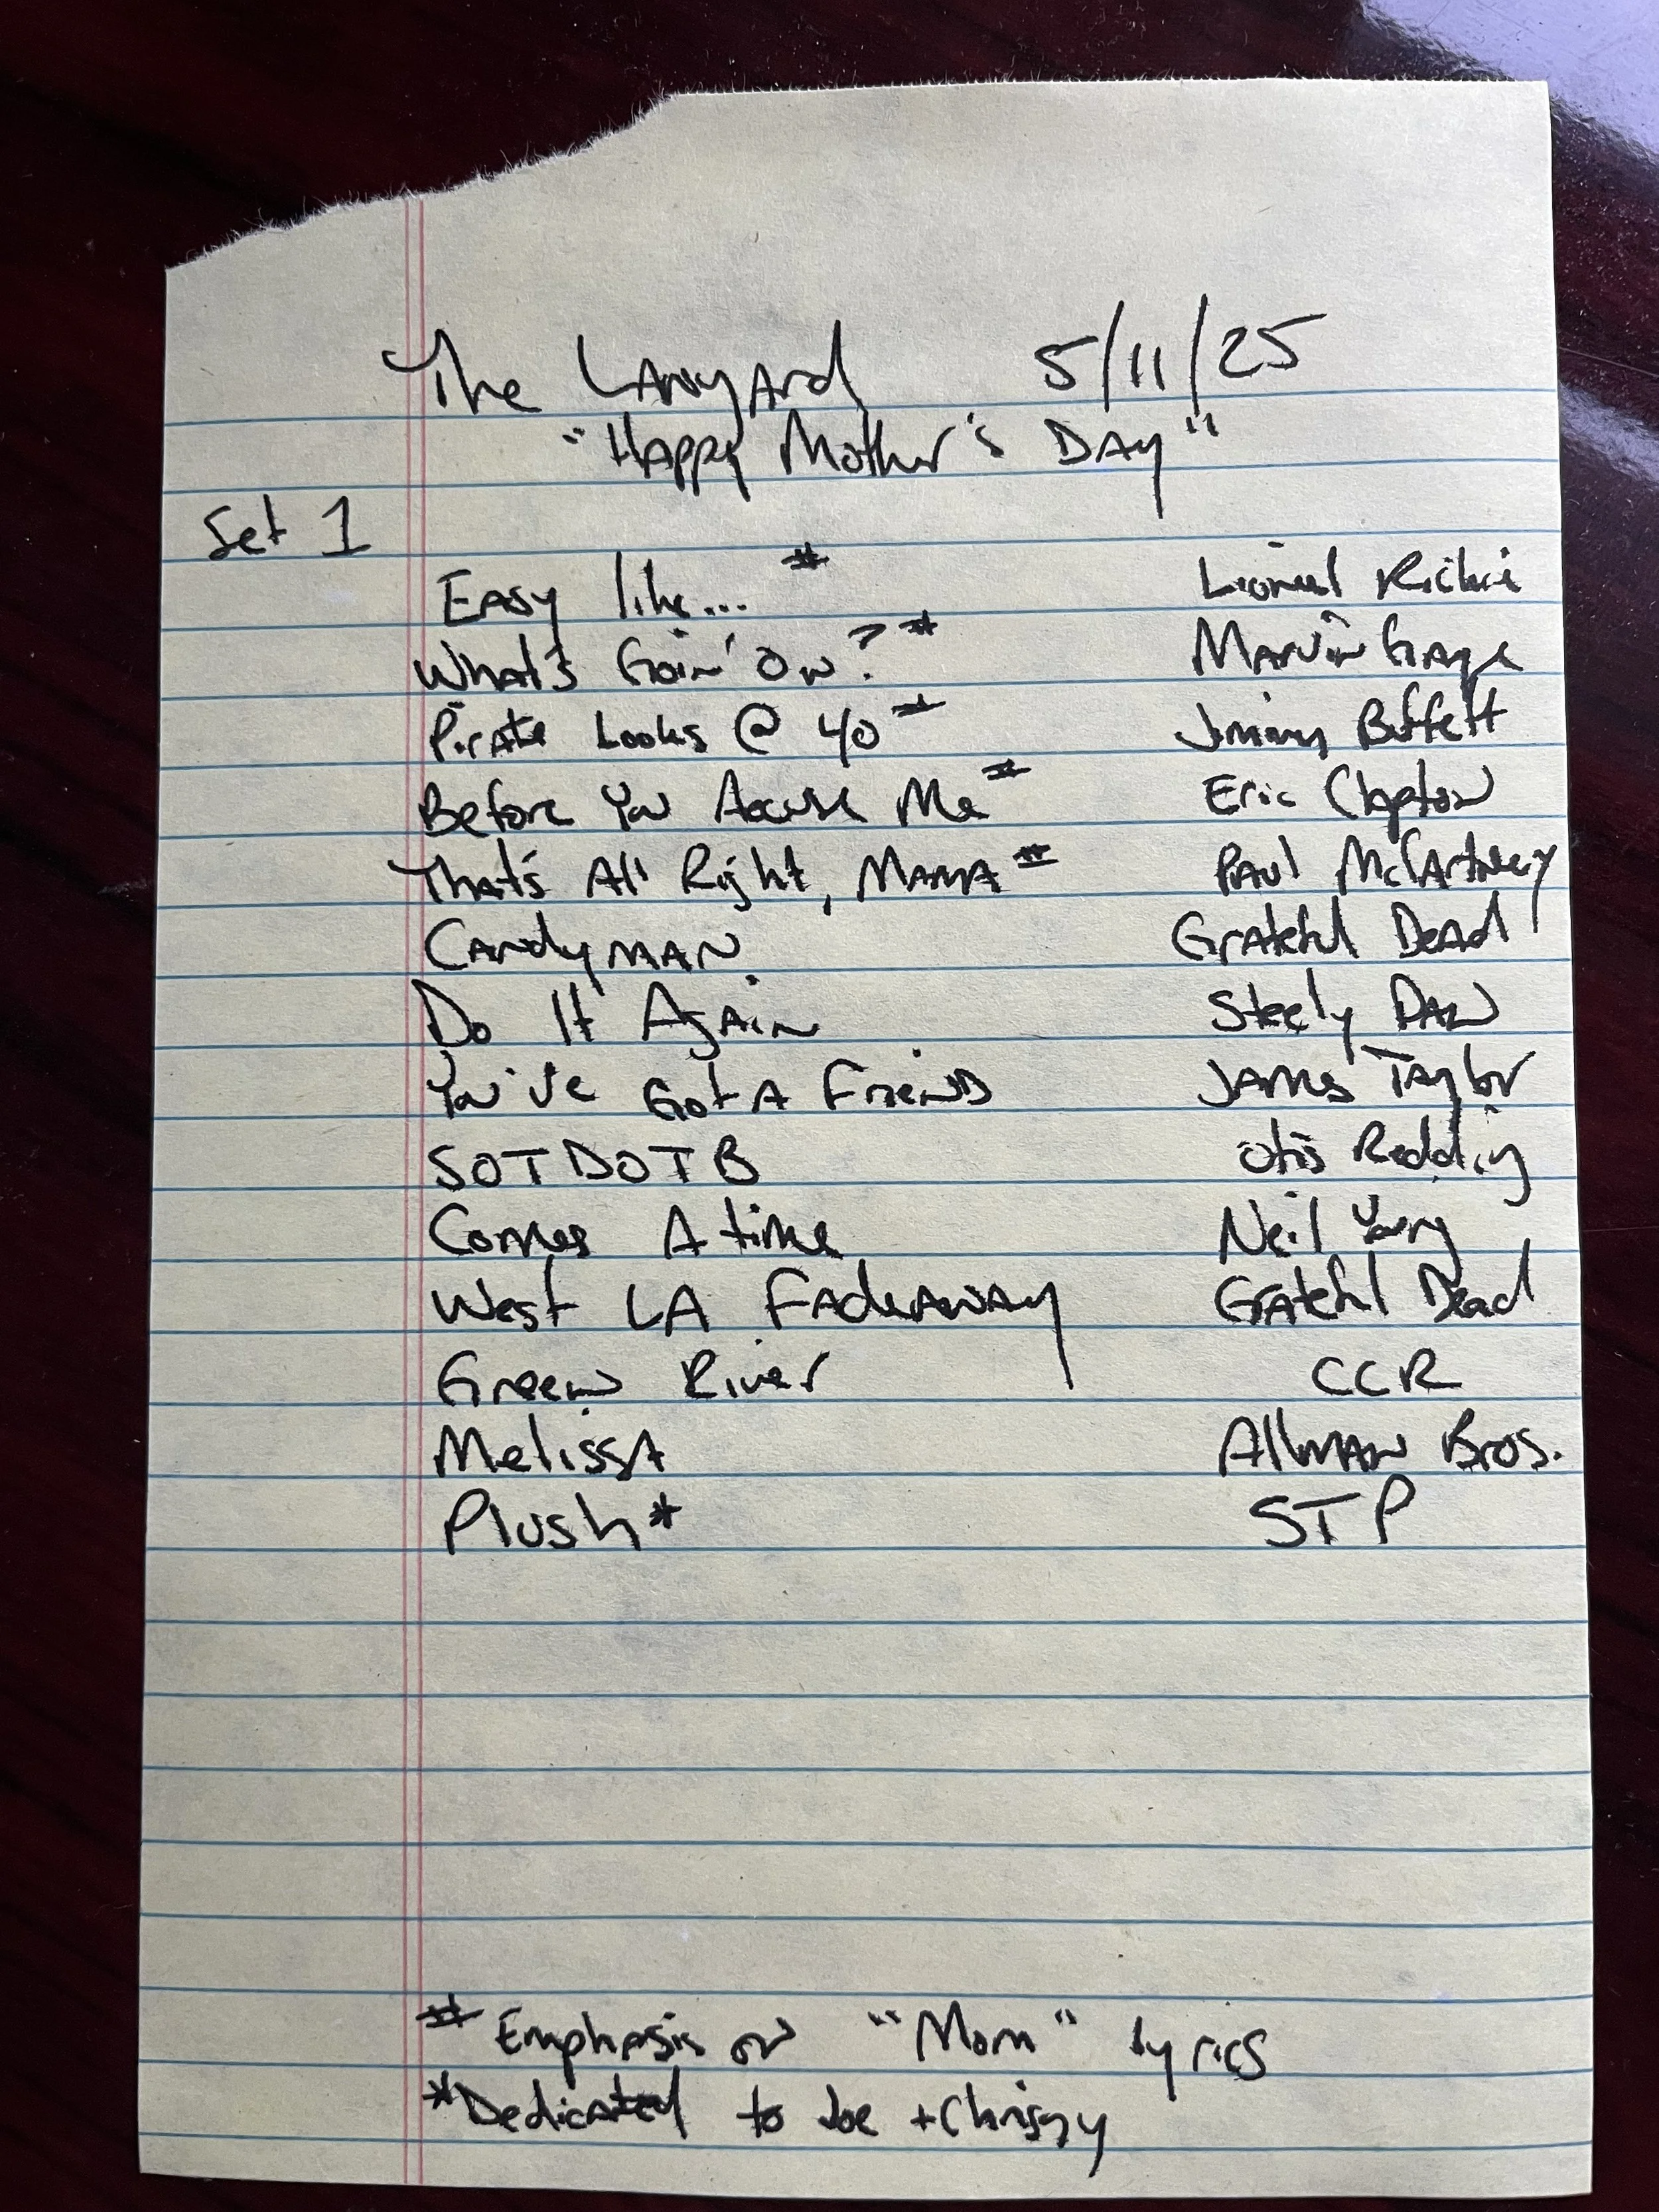 The Lanyard 5/11/25
"Happy Mother's Day"
Set 1
Easy like... # Lionel Richie
What's Goin' On? # Marvin Gaye
Pirate Looks @ 40 # Jimmy Buffett
Before You Accuse Me # Eric Clapton
That's All Right, Mama # Paul McCartney
Candyman Grateful Dead
Do It Again Steely Dan
You've Got A Friend James Taylor
SOTDOTB Otis Redding
Comes A time Neil Young
West LA Fadeaway Grateful Dead
Green River CCR
Melissa Allman Bros.
Plush* STP
# Emphasis on "Mom" lyrics
*Dedicated to Joe + Chrissy